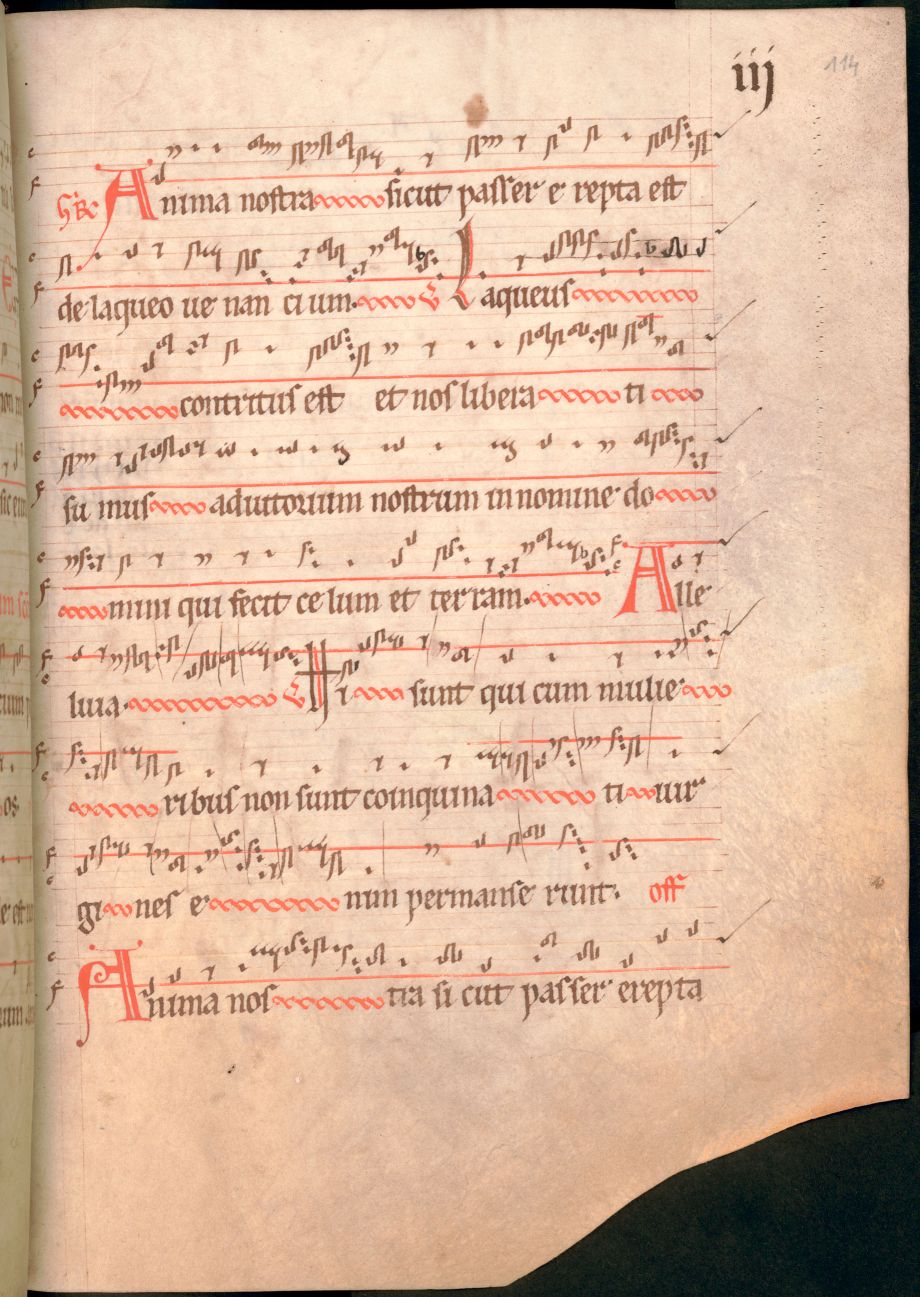 iij 114
Anima nostra sicut passer e repta est
de laqueo ue nan cium. Laqueus
contritus est et nos libera ti
su mus adiutorium nostrum in nomine do
mini qui fecit ce lum et terram. Alle
luia. Hi sunt qui cum mulie
ribus non sunt coinquina ti uir
gi nes e nim permanse runt. Off
Anima nos tra si cut passer erepta